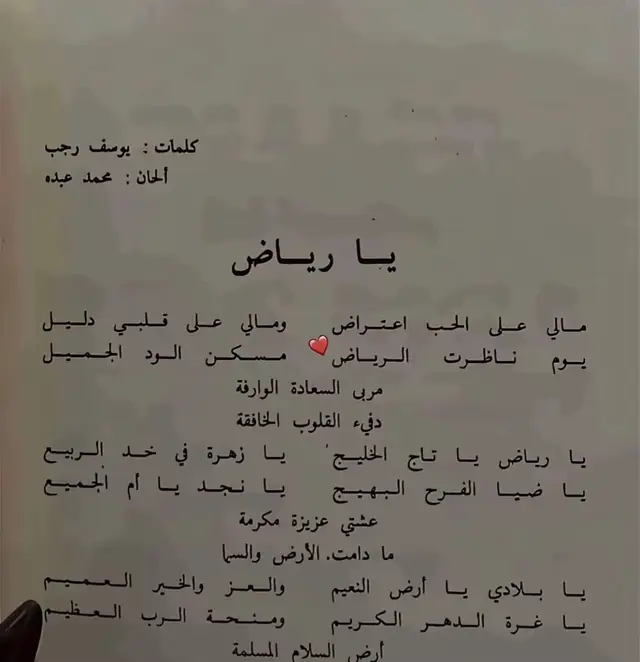 كلمات : يوسف رجب
ألحان : محمد عبده
يا رياض
مالي على الحب اعتراض ومالي على قلبي دليل
يوم ناظرت الرياض مسكن الود الجميل
مربى السعادة الوارفة
دفيء القلوب الخافقة
يا رياض يا تاج الخليج يا زهرة في خد الربيع
يا ضيا الفرح البهيج يا نجد يا أم الجميع
عشتي عزيزة مكرمة
ما دامت. الأرض والسما
يا بلادي يا أرض النعيم والعز والخير العميم
يا غرة الدهر الكريم ومنحة الرب العظيم
أرض السلام المسلمة